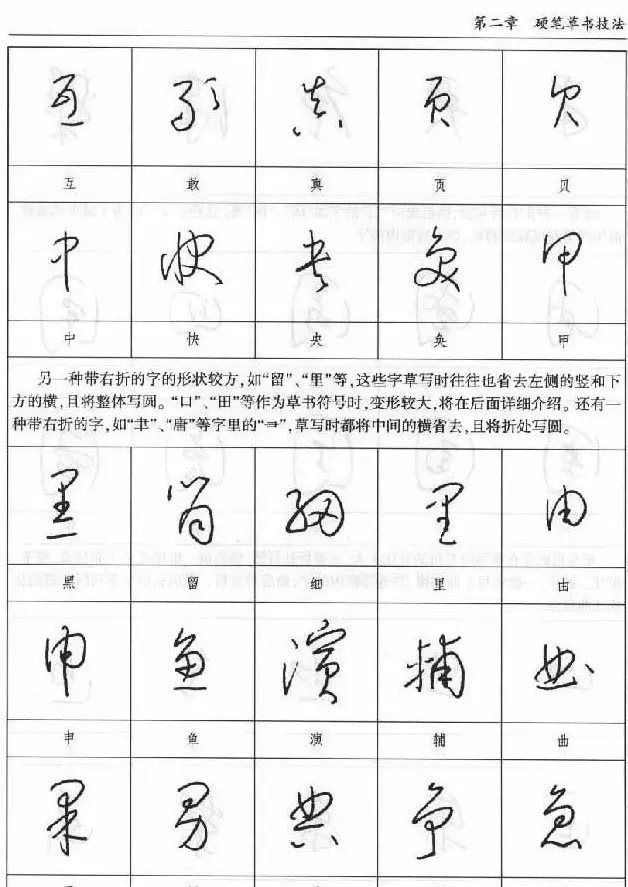 第二章 硬笔草书技法
互 敢 真 页 欠
互 敢 真 页 贝
中 快 央 奂 甲
中 快 央 奂 甲
另一种带右折的字的形状较方,如“留”、“里”等,这些字草写时往往也省去左侧的竖和下
方的横,且将整体写圆。“口”、“田”等作为草书符号时,变形较大,将在后面详细介绍。还有一
种带右折的字,如“聿”、“唐”等字里的“⇒”,草写时都将中间的横省去,且将折处写圆。
黑 留 细 里 由
黑 留 细 里 由
申 鱼 演 辅 曲
申 鱼 演 辅 曲
果 男 典 争 急